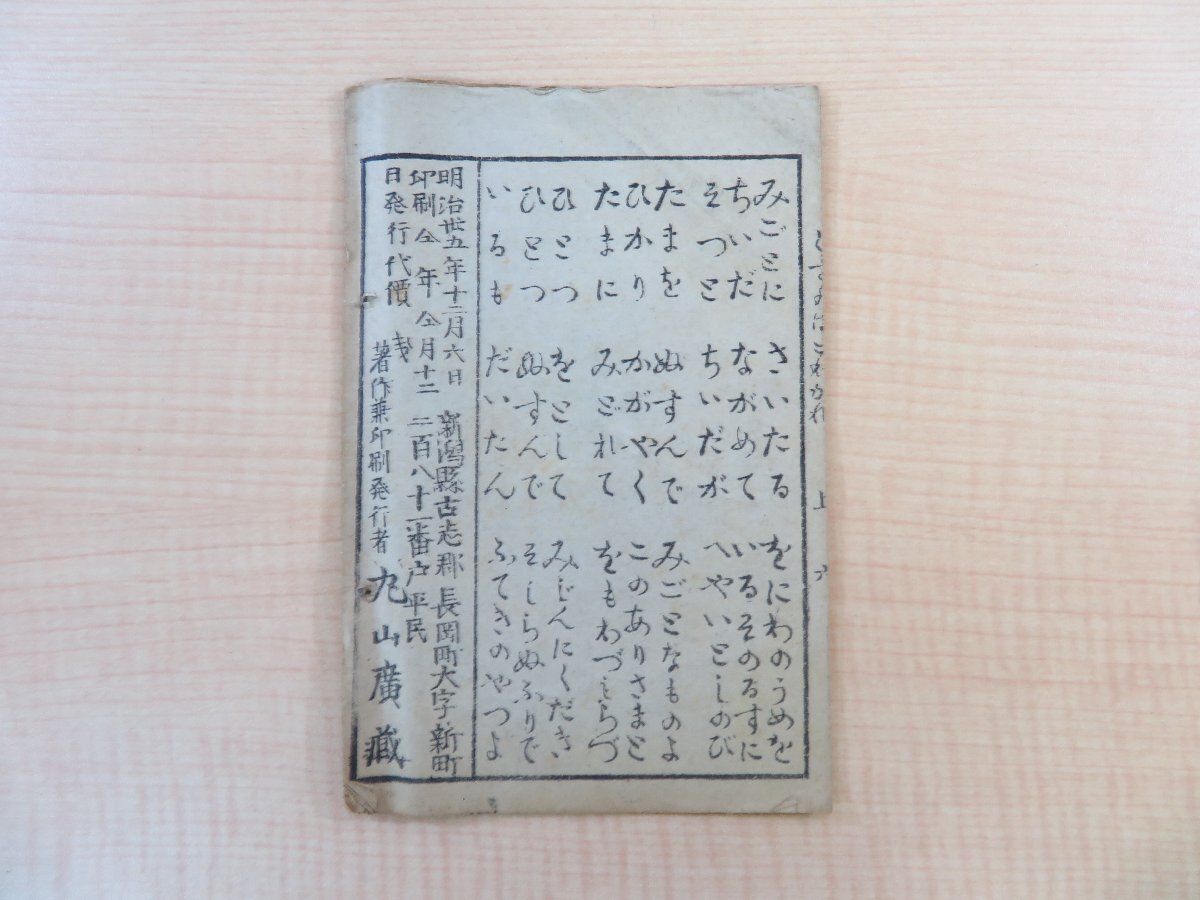 みごとに さいたる をにわのうめを
ちいだ ながめて いるそのるすに
そつと ちいだが へやいとしのび
たまを ぬすんで みごとなものよ
ひかり かがやく このありさまと
たまに みどれて をもわづしらづ
ひとつ をとして みぢんにくだき
ひとつ ぬすんで そしらぬふりで
いるも だいたん ふてきのやつよ
明治卅五年十二月六日
印刷仝年仝月十二
日発行代價
新潟縣古志郡長岡町大字新町
二百八十一番戸平民
著作兼印刷発行者 丸山廣藏
上